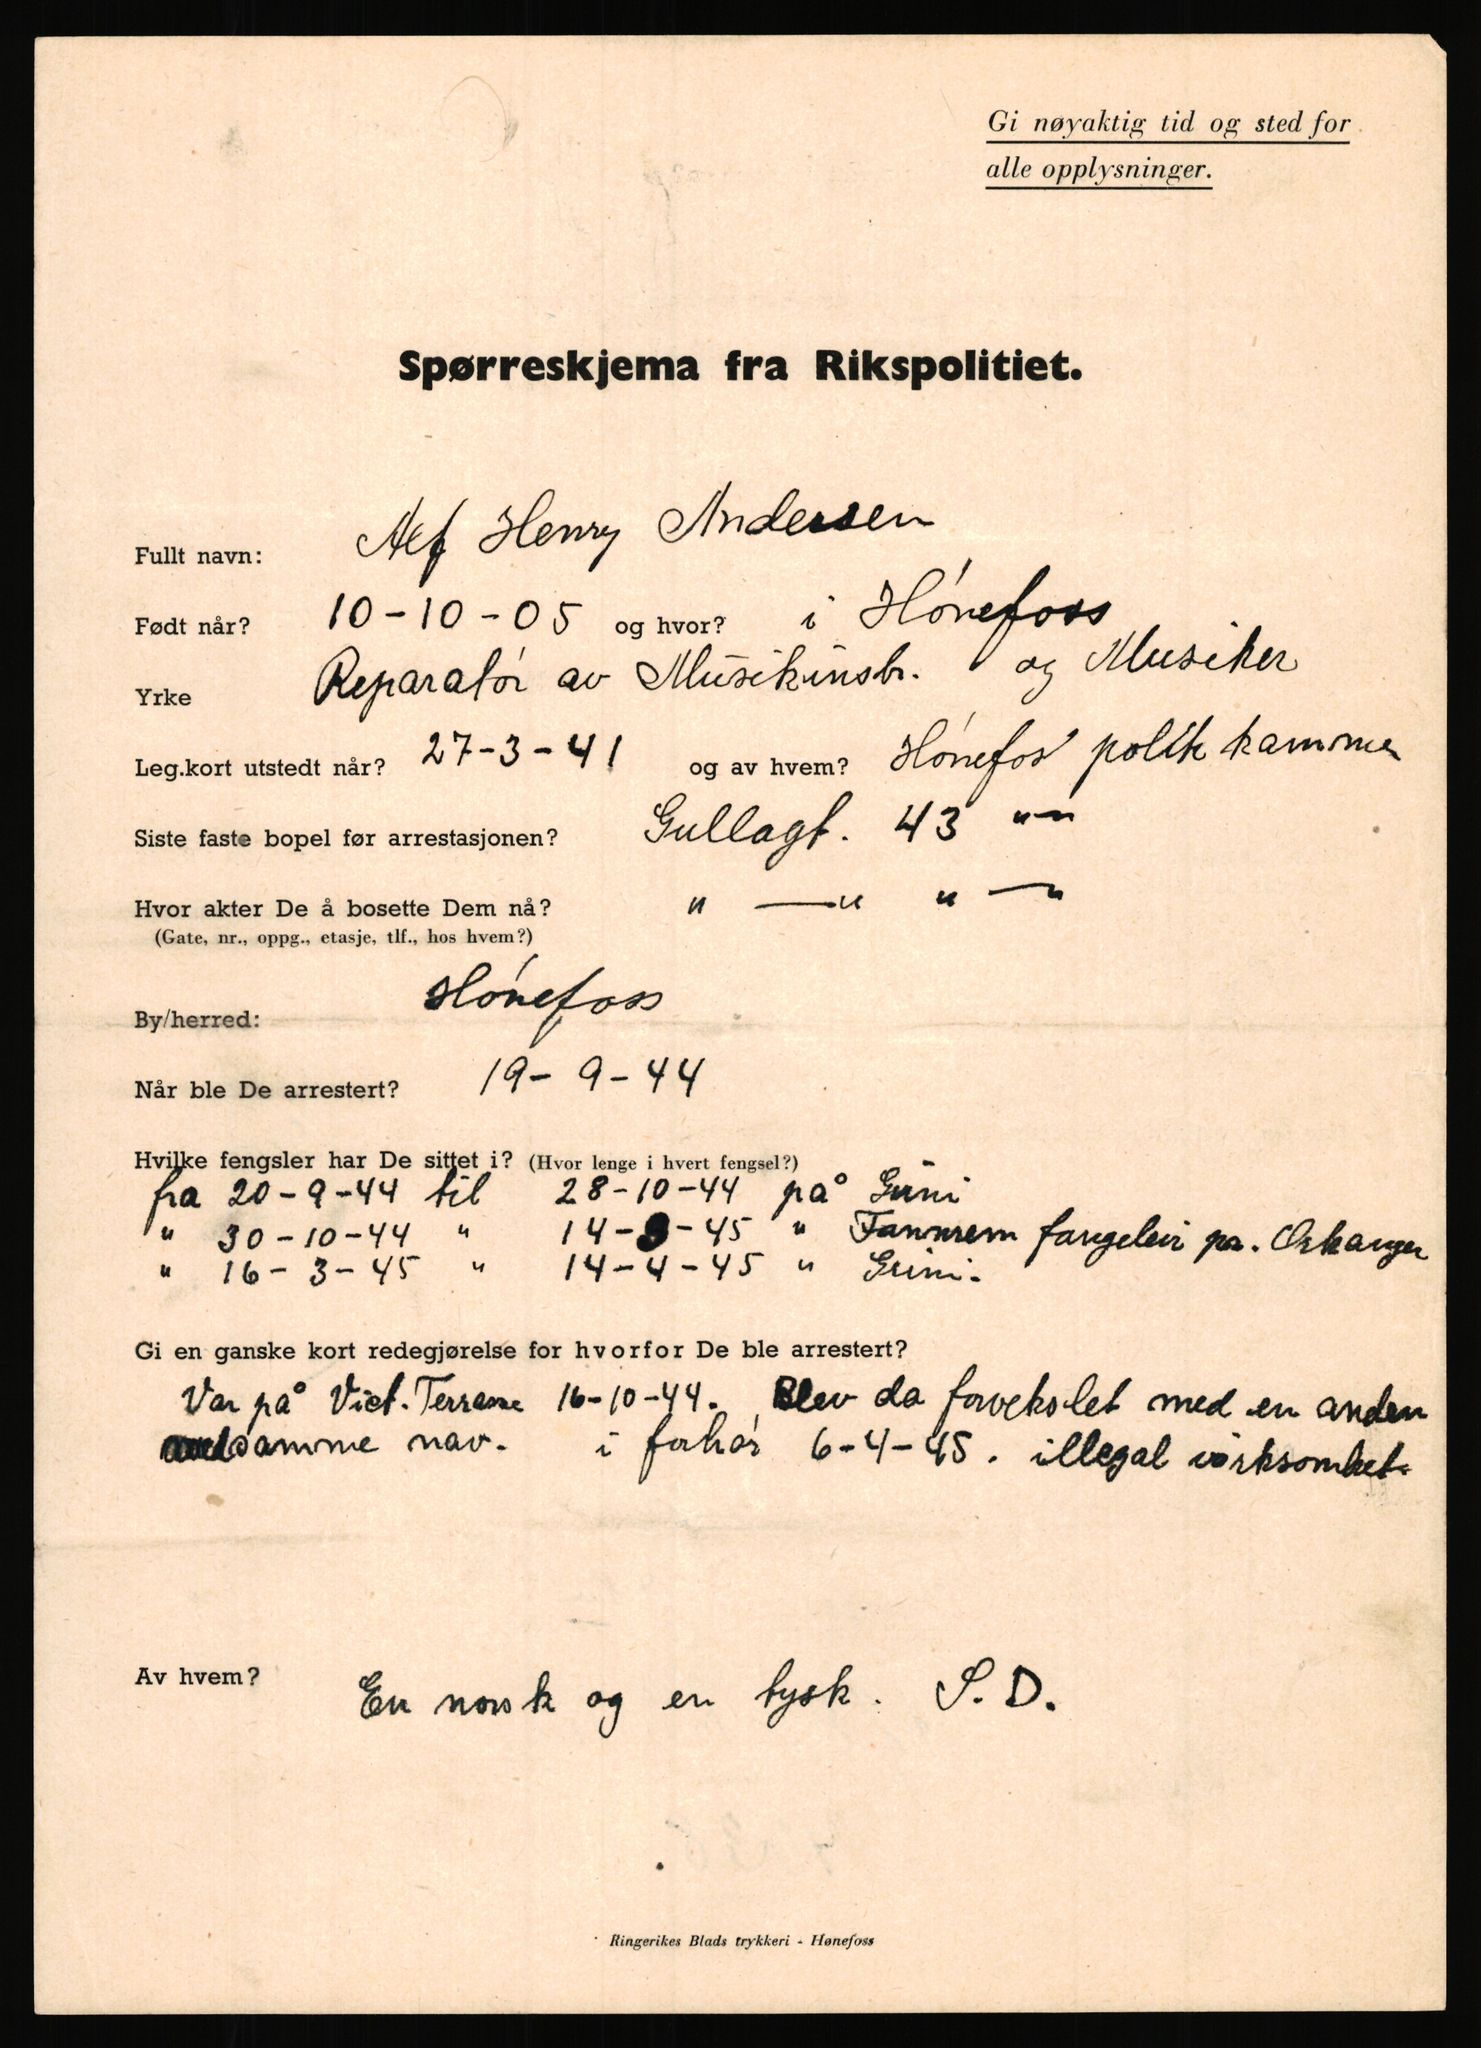 Gi nøyaktig tid og sted for
alle opplysninger.
Spørreskjema fra Rikspolitiet.
Fullt navn: Alf Henry Andersen
Født når? 10-10-05 og hvor? i Hónefoss
Yrke Reparatór av Musikinstr. og Musiker
Leg.kort utstedt når? 27-3-41 og av hvem? Hónefos politikammer
Siste faste bopel før arrestasjonen? Gullagt. 43 "—"
Hvor akter De å bosette Dem nå? " — " " — "
(Gate, nr., oppg., etasje, tlf., hos hvem?)
By/herred: Hónefoss
Når ble De arrestert? 19-9-44
Hvilke fengsler har De sittet i? (Hvor lenge i hvert fengsel?)
fra 20-9-44 til 28-10-44 på Grini
" 30-10-44 " 14-3-45 " Fannrem fangeleir pr. Orkanger
" 16-3-45 " 14-4-45 " Grini.
Gi en ganske kort redegjørelse for hvorfor De ble arrestert?
Var på Vict. Terrasse 16-10-44. Blev da forvekslet med en anden
med samme nav. i forhór 6-4-45. illegal virksomhet.
Av hvem? En norsk og en tysk. S.D.
Ringerikes Blads trykkeri - Hønefoss